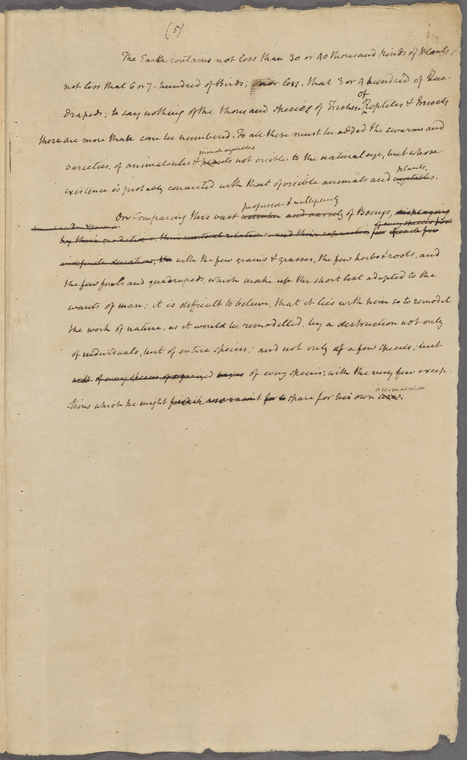 (5)
The Earth contains not less than 30 or 40 thousand kinds of Plants;
not less that 6 or 7. hundred of Birds; nor less. that 3 or 4 hundred of Qua-
of
drupeds; to say nothing of the thousand species of Fishes. Reptiles & Insects
there are more than can be numbered. To all these must be added the swarms and
minute vegetables
varieties, of animalcules & not visible to the natural eye, but whose
plants.
existence is probably connected with that of visible animals and vegetables.
profusion & multiplicity
On comparing this vast number and variety of Beings,
by their gradations, their natural relations, and their
indefinite duration, with the few grains & grasses, the few herbs & roots, and
the few fowls and quadrupeds, which make up the short list adapted to the
wants of man; it is difficult to believe, that it lies with him so to remodel
the work of nature, as it would be remodelled, by a destruction not only
of individuals, but of entire species; and not only of a few species, but
of every species, with the very few excep-
accomodation
tions which he might spare for his own